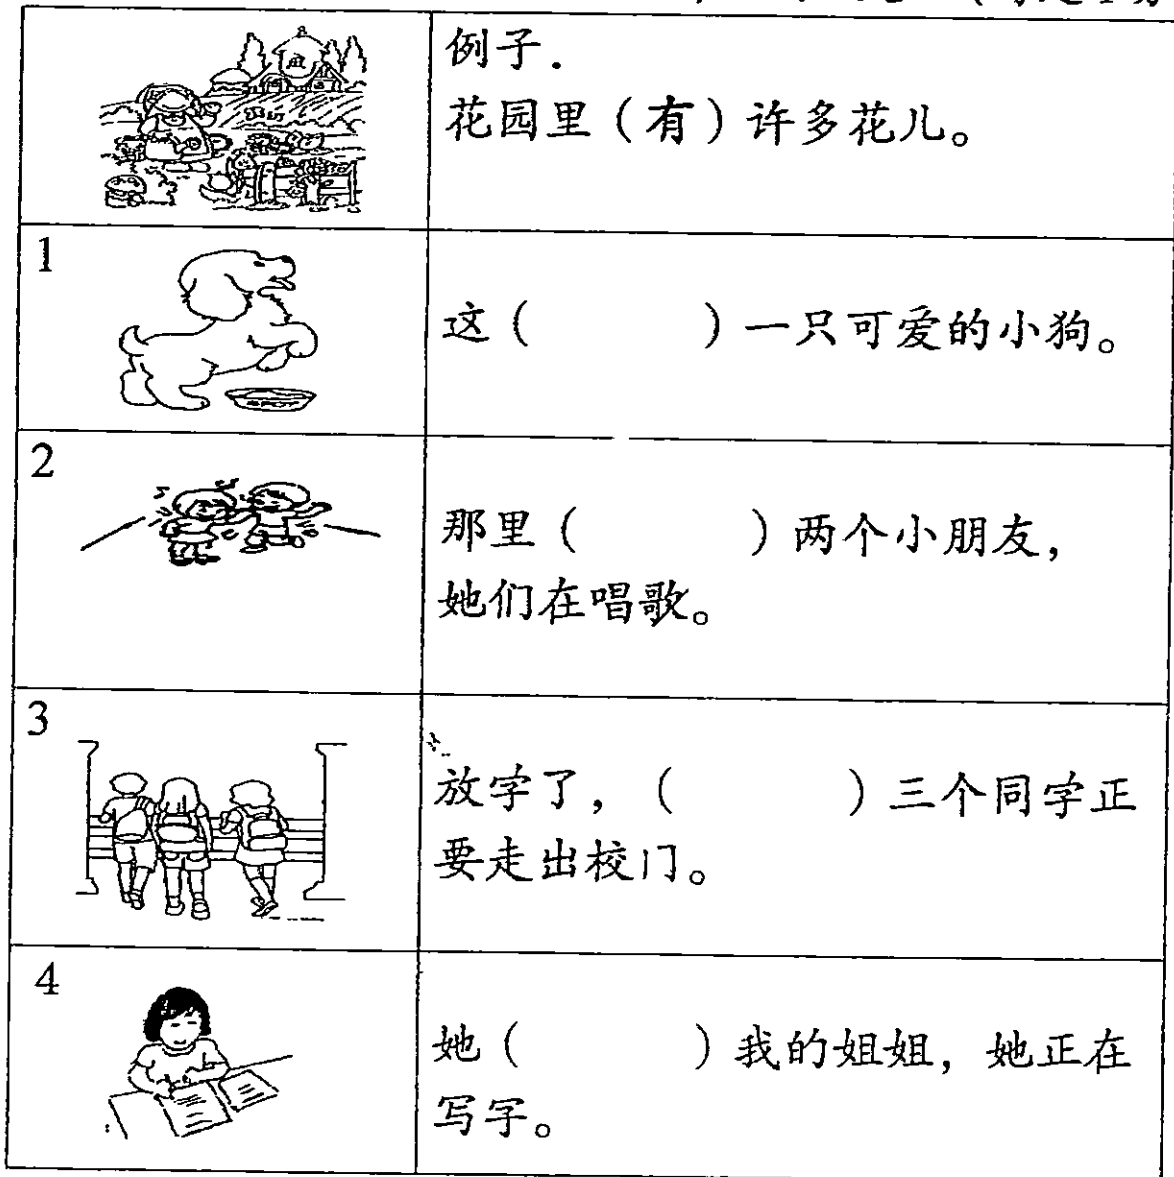 例子.
花园里（有）许多花儿。
1
这（ ）一只可爱的小狗。
2
那里（ ）两个小朋友，
她们在唱歌。
3
放学了，（ ）三个同学正
要走出校门。
4
她（ ）我的姐姐，她正在
写字。